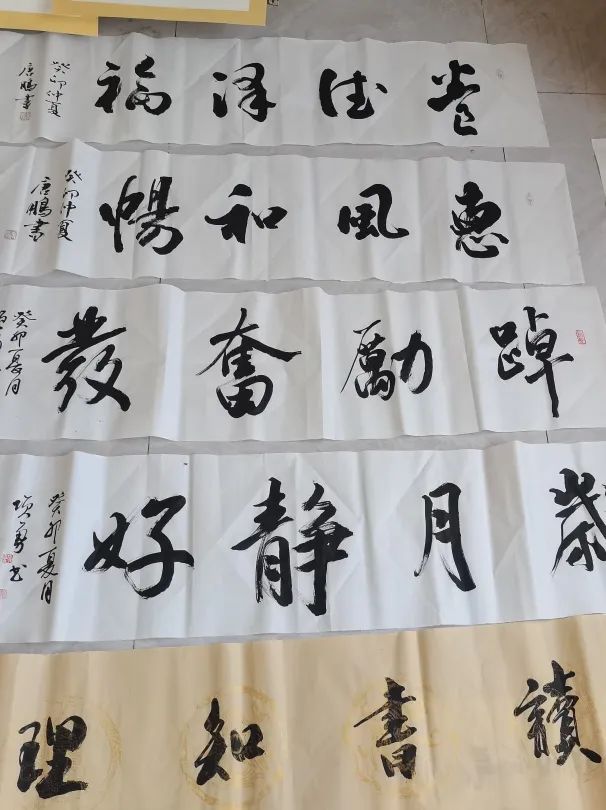 德泽福
癸卯仲夏
唐鵬書
惠風和暢
癸卯仲夏
唐鵬書
踔勵奮發
癸卯夏月
歲月静好
癸卯夏月
讀書知理